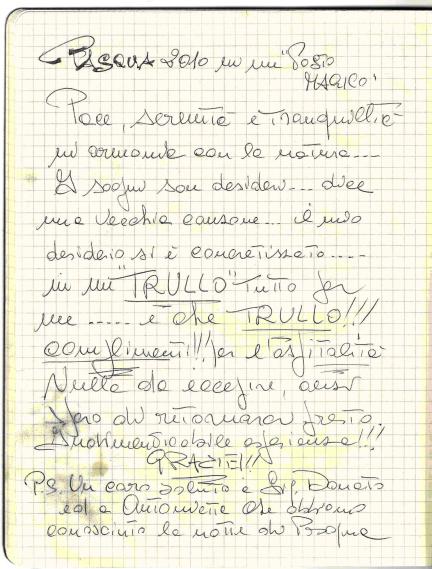 PASQUA 2010 in un "Posto
MAGICO"
Pace, serenità e tranquillità
in armonia con la natura...
I sogni son desideri... dice
una vecchia canzone... il mio
desiderio si è concretizzato....
in un "TRULLO" tutto per
me ..... e che TRULLO!!!
complimenti!! per l'ospitalità
Nulla da eccepire, anzi
spero di ritornarci presto.
Indimenticabile esperienza!!!
GRAZIE!!!
P.S. Un caro saluto a Sig. Donato
ed a Antonietta che abbiamo
conosciuto la notte di Pasqua